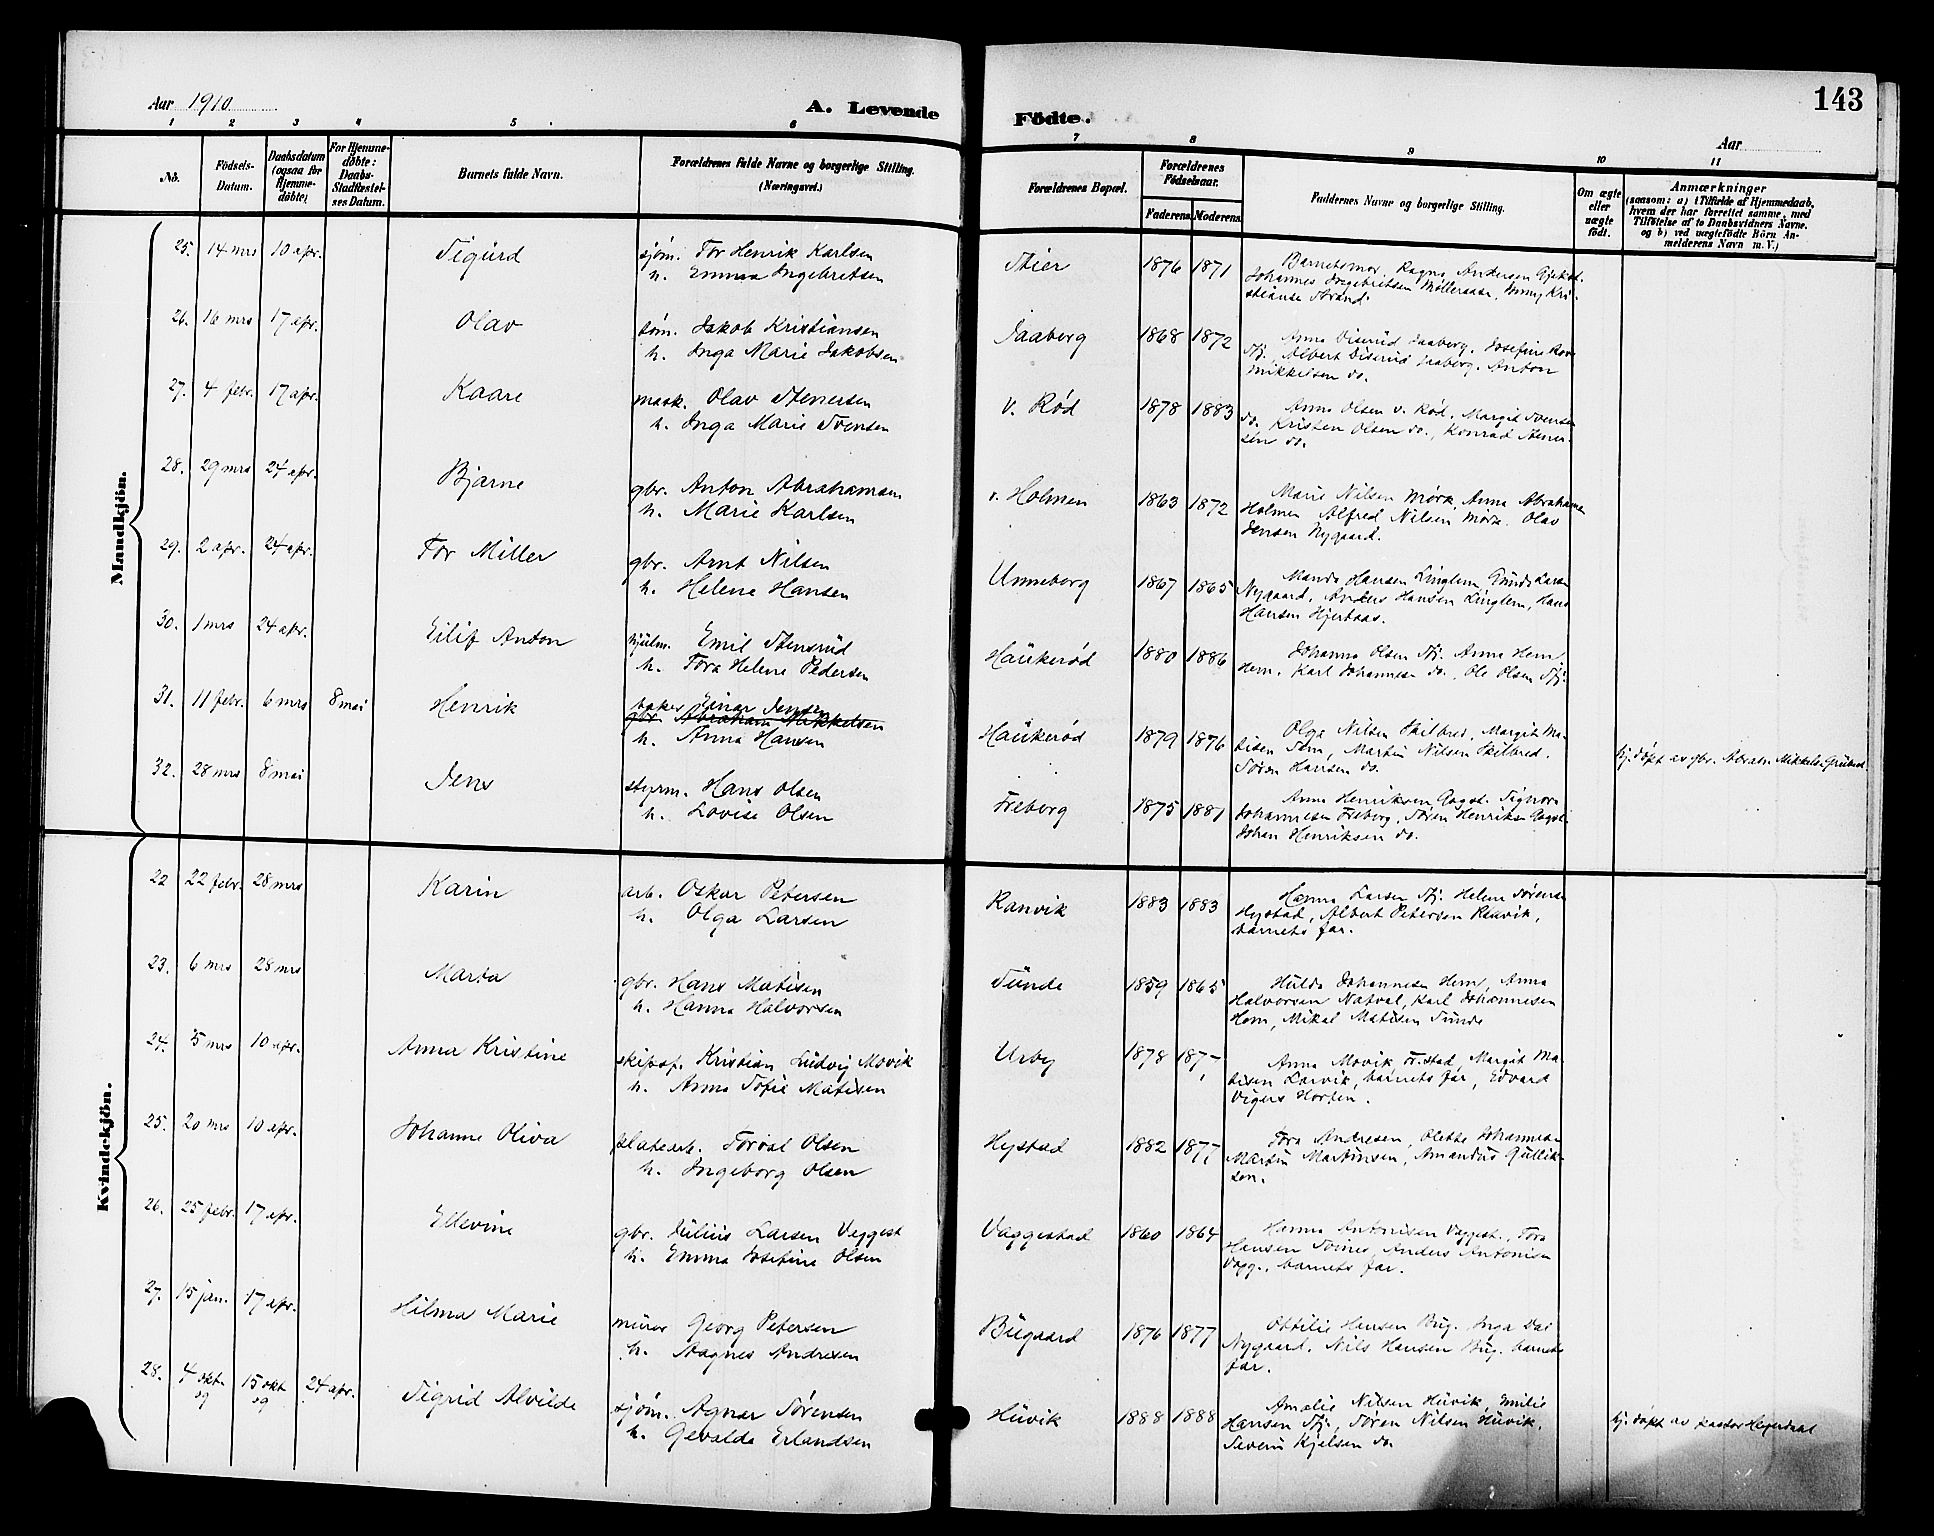 143
Aar 1910
A. Levende Födte.
Aar
1 2 3 4 5 6 7 8 9 10 11
No.
Födsels-Datum.
Daabsdatum (ogsaa for Hjemmedøbte)
For Hjemmedøbte: Daabs-Stadfæstelses Datum.
Barnets fulde Navn.
Forældrenes fulde Navne og borgerlige Stilling. (Næringsvei.)
Forældrenes Bopæl.
Forældrenes Födselsaar.
Faderens. Moderens.
Faddernes Navne og borgerlige Stilling.
Om ægte eller uægte født.
Anmærkninger
(saasom: a) i Tilfælde af Hjemmedaab, hvem der har forrettet samme, med Tilføielse af to Daabsvidners Navne, og b) ved uægtefødte Børn Anmelderens Navn m. V.)
Mandkjön.
25. 14 mrs 10 apr. Sigurd sjøm. Tor Henrik Karlsen
h. Emma Ingebretsen
Skier 1876 1871 Barnets mor, Ragna Andersen Gjekst.
Johannes Ingebretsen Møllersøse, Kristianse Strand.
26. 16 mrs 17 apr. Olav tøm. Jakob Kristiansen
h. Inga Marie Jakobsen
Jaaberg 1868 1872 Anna Diserud Jaaberg, Josefine
Albert Diserud Jaaberg, Anton
Mikkelsen do.
27. 4 febr. 17 apr. Kaare mask. Olav Stenersen
h. Inga Marie Svensen
v. Rød 1878 1883 Anna Olsen v. Rød, Margit Svensen
do. Kristen Olsen do., Konrad Stenersen do.
28. 29 mrs 24 apr. Bjarne gbr. Anton Abrahamsen
h. Marie Karlsen
v. Holmen 1863 1872 Marie Nilsen Mørk, Anna Abrahamsen
Holmen Alfred Nilsen Mørk, Olav
Jensen Nygaard.
29. 2 apr. 24 apr. Tor Miller gbr. Arnt Nilsen
h. Helene Hansen
Unneberg 1867 1865 Manda Hansen Linglem, Gunda Larsen
Nygaard, Anders Hansen Linglem, Hans
Hansen Hjertaas.
30. 1 mrs 24 apr. Eilif Anton hjulm. Emil Stensrud
h. Tora Helene Pedersen
Haukerød 1880 1886 Johanna Olsen Sfj. Anna Hem
Hem, Karl Johannesen do., Ole Olsen Sfj.
31. 11 febr. 6 mrs 8 mai Henrik baker Einar Jensen
gbr. Abraham Mikkelsen
h. Anna Hansen
Haukerød 1879 1876 Olga Nilsen Skilbred, Margit Matisen Sem, Martin Nilsen Skilbred,
Søren Hansen do.
hj. døpt av gbr. Abrah. Mikkelsen
32. 28 mrs 8 mai Jens styrm. Hans Olsen
h. Lovise Olsen
Freberg 1875 1881 Anna Henriksen Gogst. Signora
Johannesen Freberg, Søren Henriksen Gogst.
Johan Henriksen do.
Kvindekjön.
22 22 febr. 28 mrs Karin arb. Oskar Petersen
h. Olga Larsen
Ranvik 1883 1883 Hanna Larsen Sfj. Helene Sørensen
Hystad, Albert Petersen Ranvik,
barnets far.
23. 6 mrs 28 mrs Marta gbr. Hans Matisen
h. Hanna Halvorsen
Sunde 1859 1865 Hulda Johannesen Hem, Anna
Halvorsen Natval, Karl Johannesen
Hem, Mikal Matisen Sunde
24. 5 mrs 10 apr. Anna Kristine skipsf. Kristian Ludvig Movik
h. Anna Sofie Matisen
Urby 1878 187 Anna Movik, Fr.stad, Margit Matisen Larvik, barnets far, Edvard
Vigers Horten.
25. 20 mrs 10 apr. Johanne Oliva platearb. Torval Olsen
h. Ingeborg Olsen
Hystad 1882 1877 Tora Andresen, Olette Johannesen
Martin Martinsen, Amandus Gulliksen.
26. 25 febr. 17 apr. Ellevine gbr. Julius Larsen Veggest
h. Emma Josefine Olsen
Vaggestad 1860 1864 Hanna Antonisen Vaggest., Tora
Hansen Soines, Anders Antonisen
Vagg., barnets far.
27. 15 jan. 17 apr. Hilma Marie murer Georg Petersen
h. Aagnes Andresen
Bugaard 1876 1877 Ottilie Hansen Bug. Inga Dal
Nygaard, Nils Hansen Bug. barnets
far.
28. 4 okt. 09 15 okt 09 24 apr. Sigrid Alvilde sjøm. Agnar Sørensen
h. Gevalda Erlandsen
Huvik 1888 1888 Amalie Nilsen Huvik, Emilie
Hansen Sfj., Søren Nilsen Huvik,
Severin Kjelsen do.
hj. døpt av pastor Heyerdal